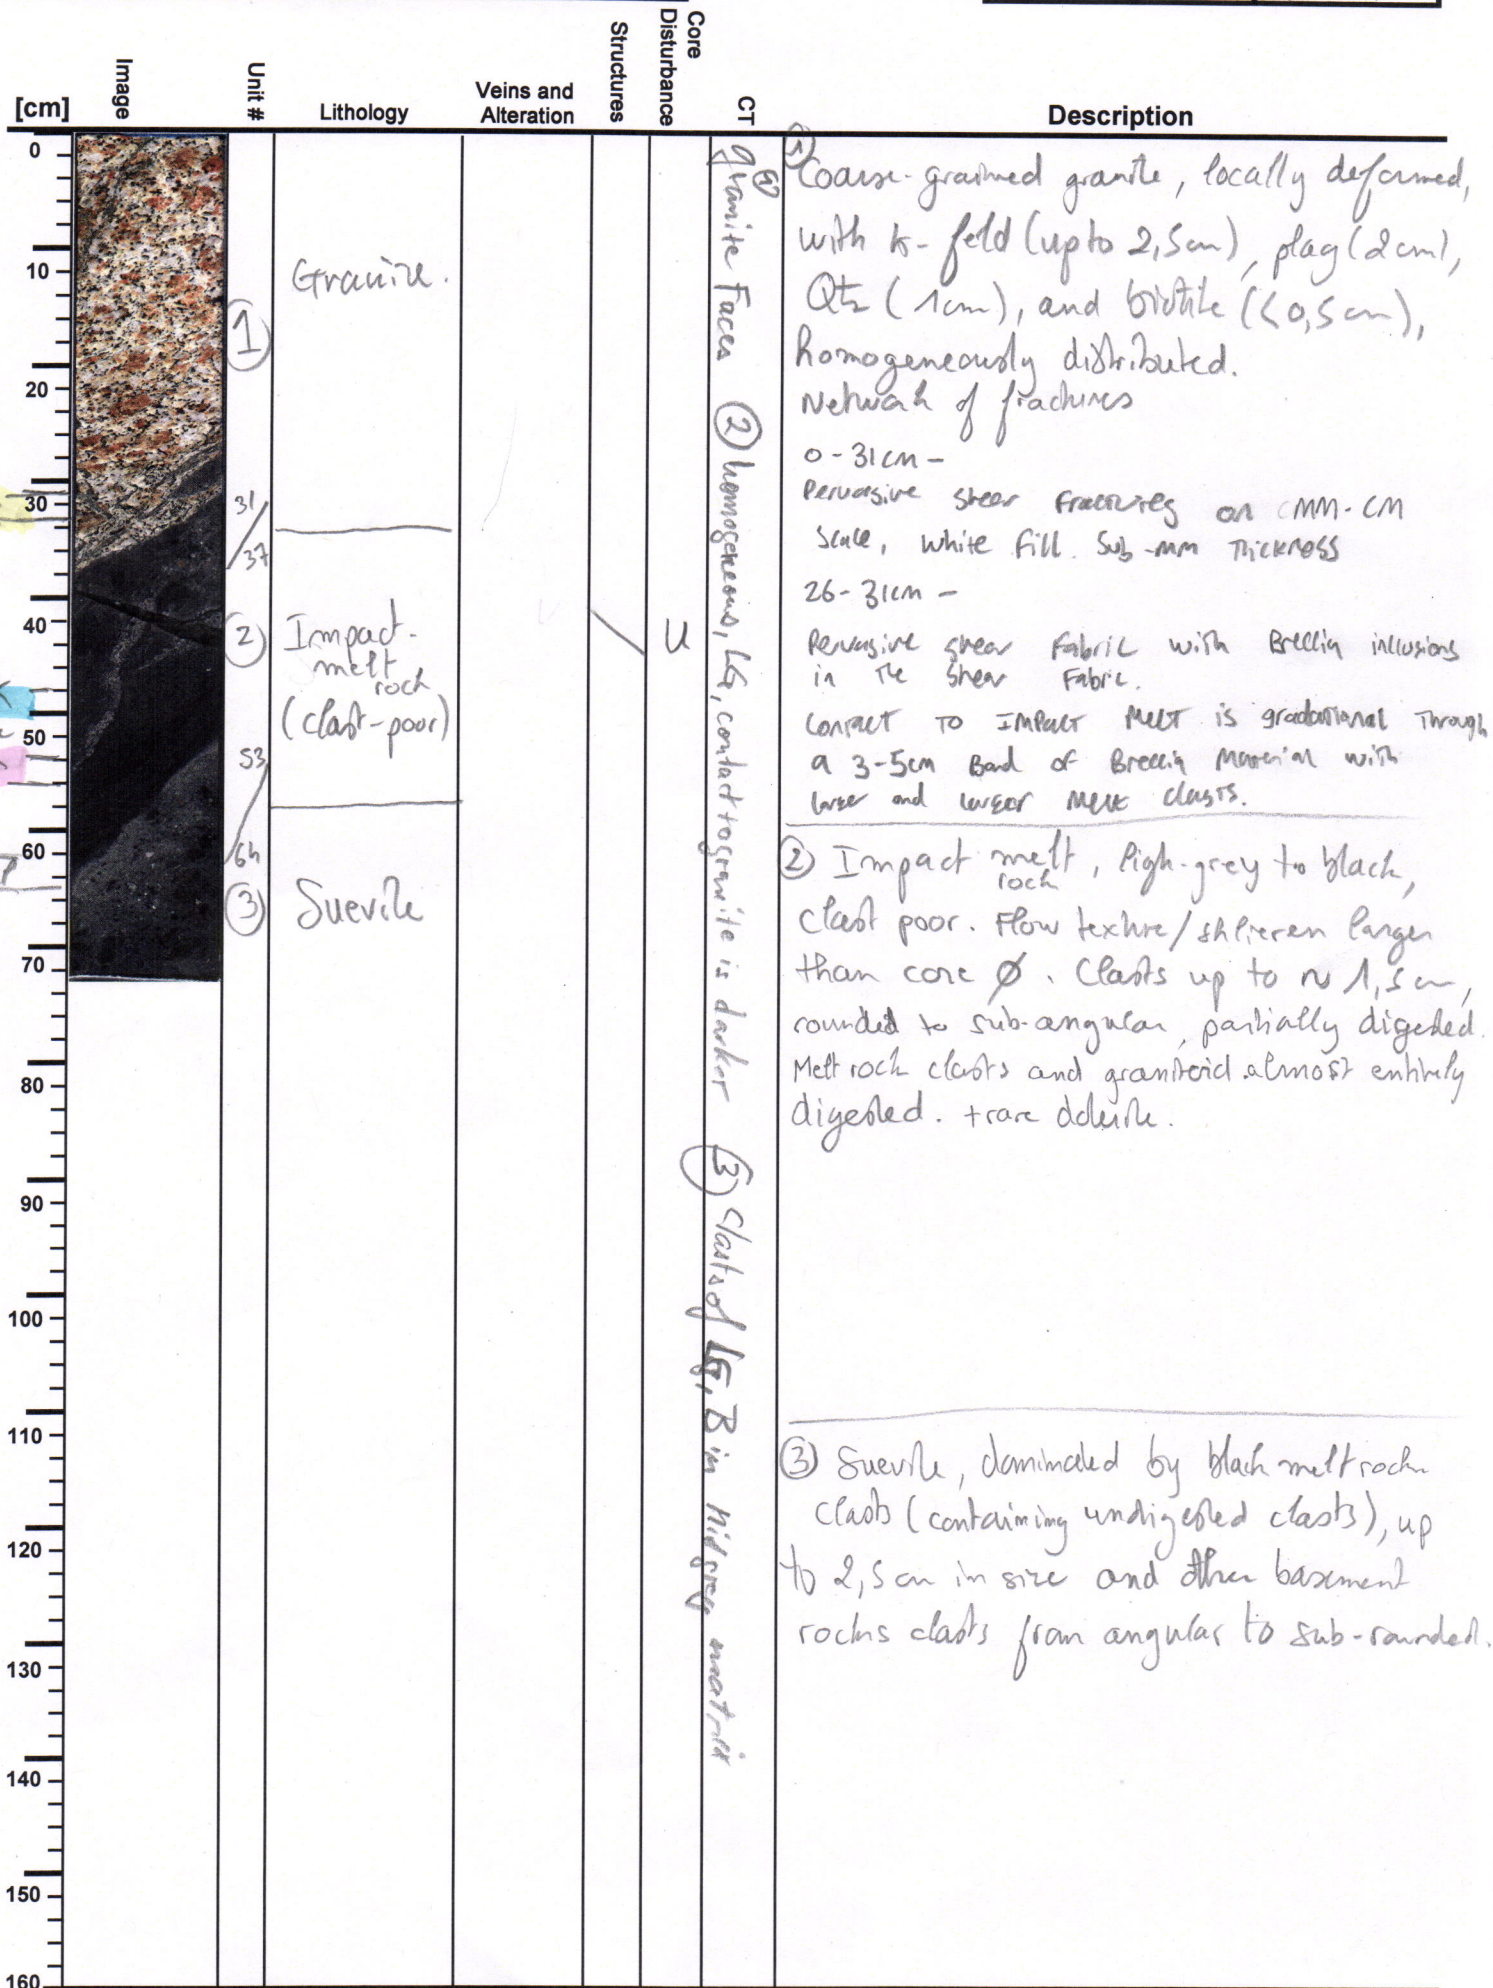 [cm]
Image
Unit #
Lithology
Veins and
Alteration
Structures
Core
Disturbance
CT
Description
0
10
20
30
40
50
60
70
80
90
100
110
120
130
140
150
160
1
31
37
2
53
64
3
Granite.
Impact-
melt
rock
(clast-poor)
Suevite
U
① granite Faces ② homogeneous, LG, contact to granite is darker ③ Clasts of LG, B in Mid grey matrix
①
Coarse-grained granite, locally deformed,
with K-feld (up to 2,5cm), plag (2cm),
Qtz (1cm), and biotite (<0,5cm),
homogeneously distributed.
Network of fractures
0-31cm -
Pervasive shear Fractures on MM-CM
Scale, white fill. Sub-mm Thickness
26-31cm -
Pervasive shear Fabric with Breccia inclusions
in The Shear Fabric.
Contact TO IMPACT Melt is gradational Through
a 3-5cm Band of Breccia Material with
larger and larger Melt clasts.
② Impact melt rock, ligh-grey to black,
clast poor. Flow texture/shlieren larger
than core Ø. Clasts up to ~ 1,5 cm,
rounded to sub-angular, partially digested.
Melt rock clasts and granitoid almost entirely
digested. + rare dolerite.
③ Suevite, dominated by black melt rock
clasts (containing undigested clasts), up
to 2,5 cm in size and other basement
rocks clasts from angular to sub-rounded.